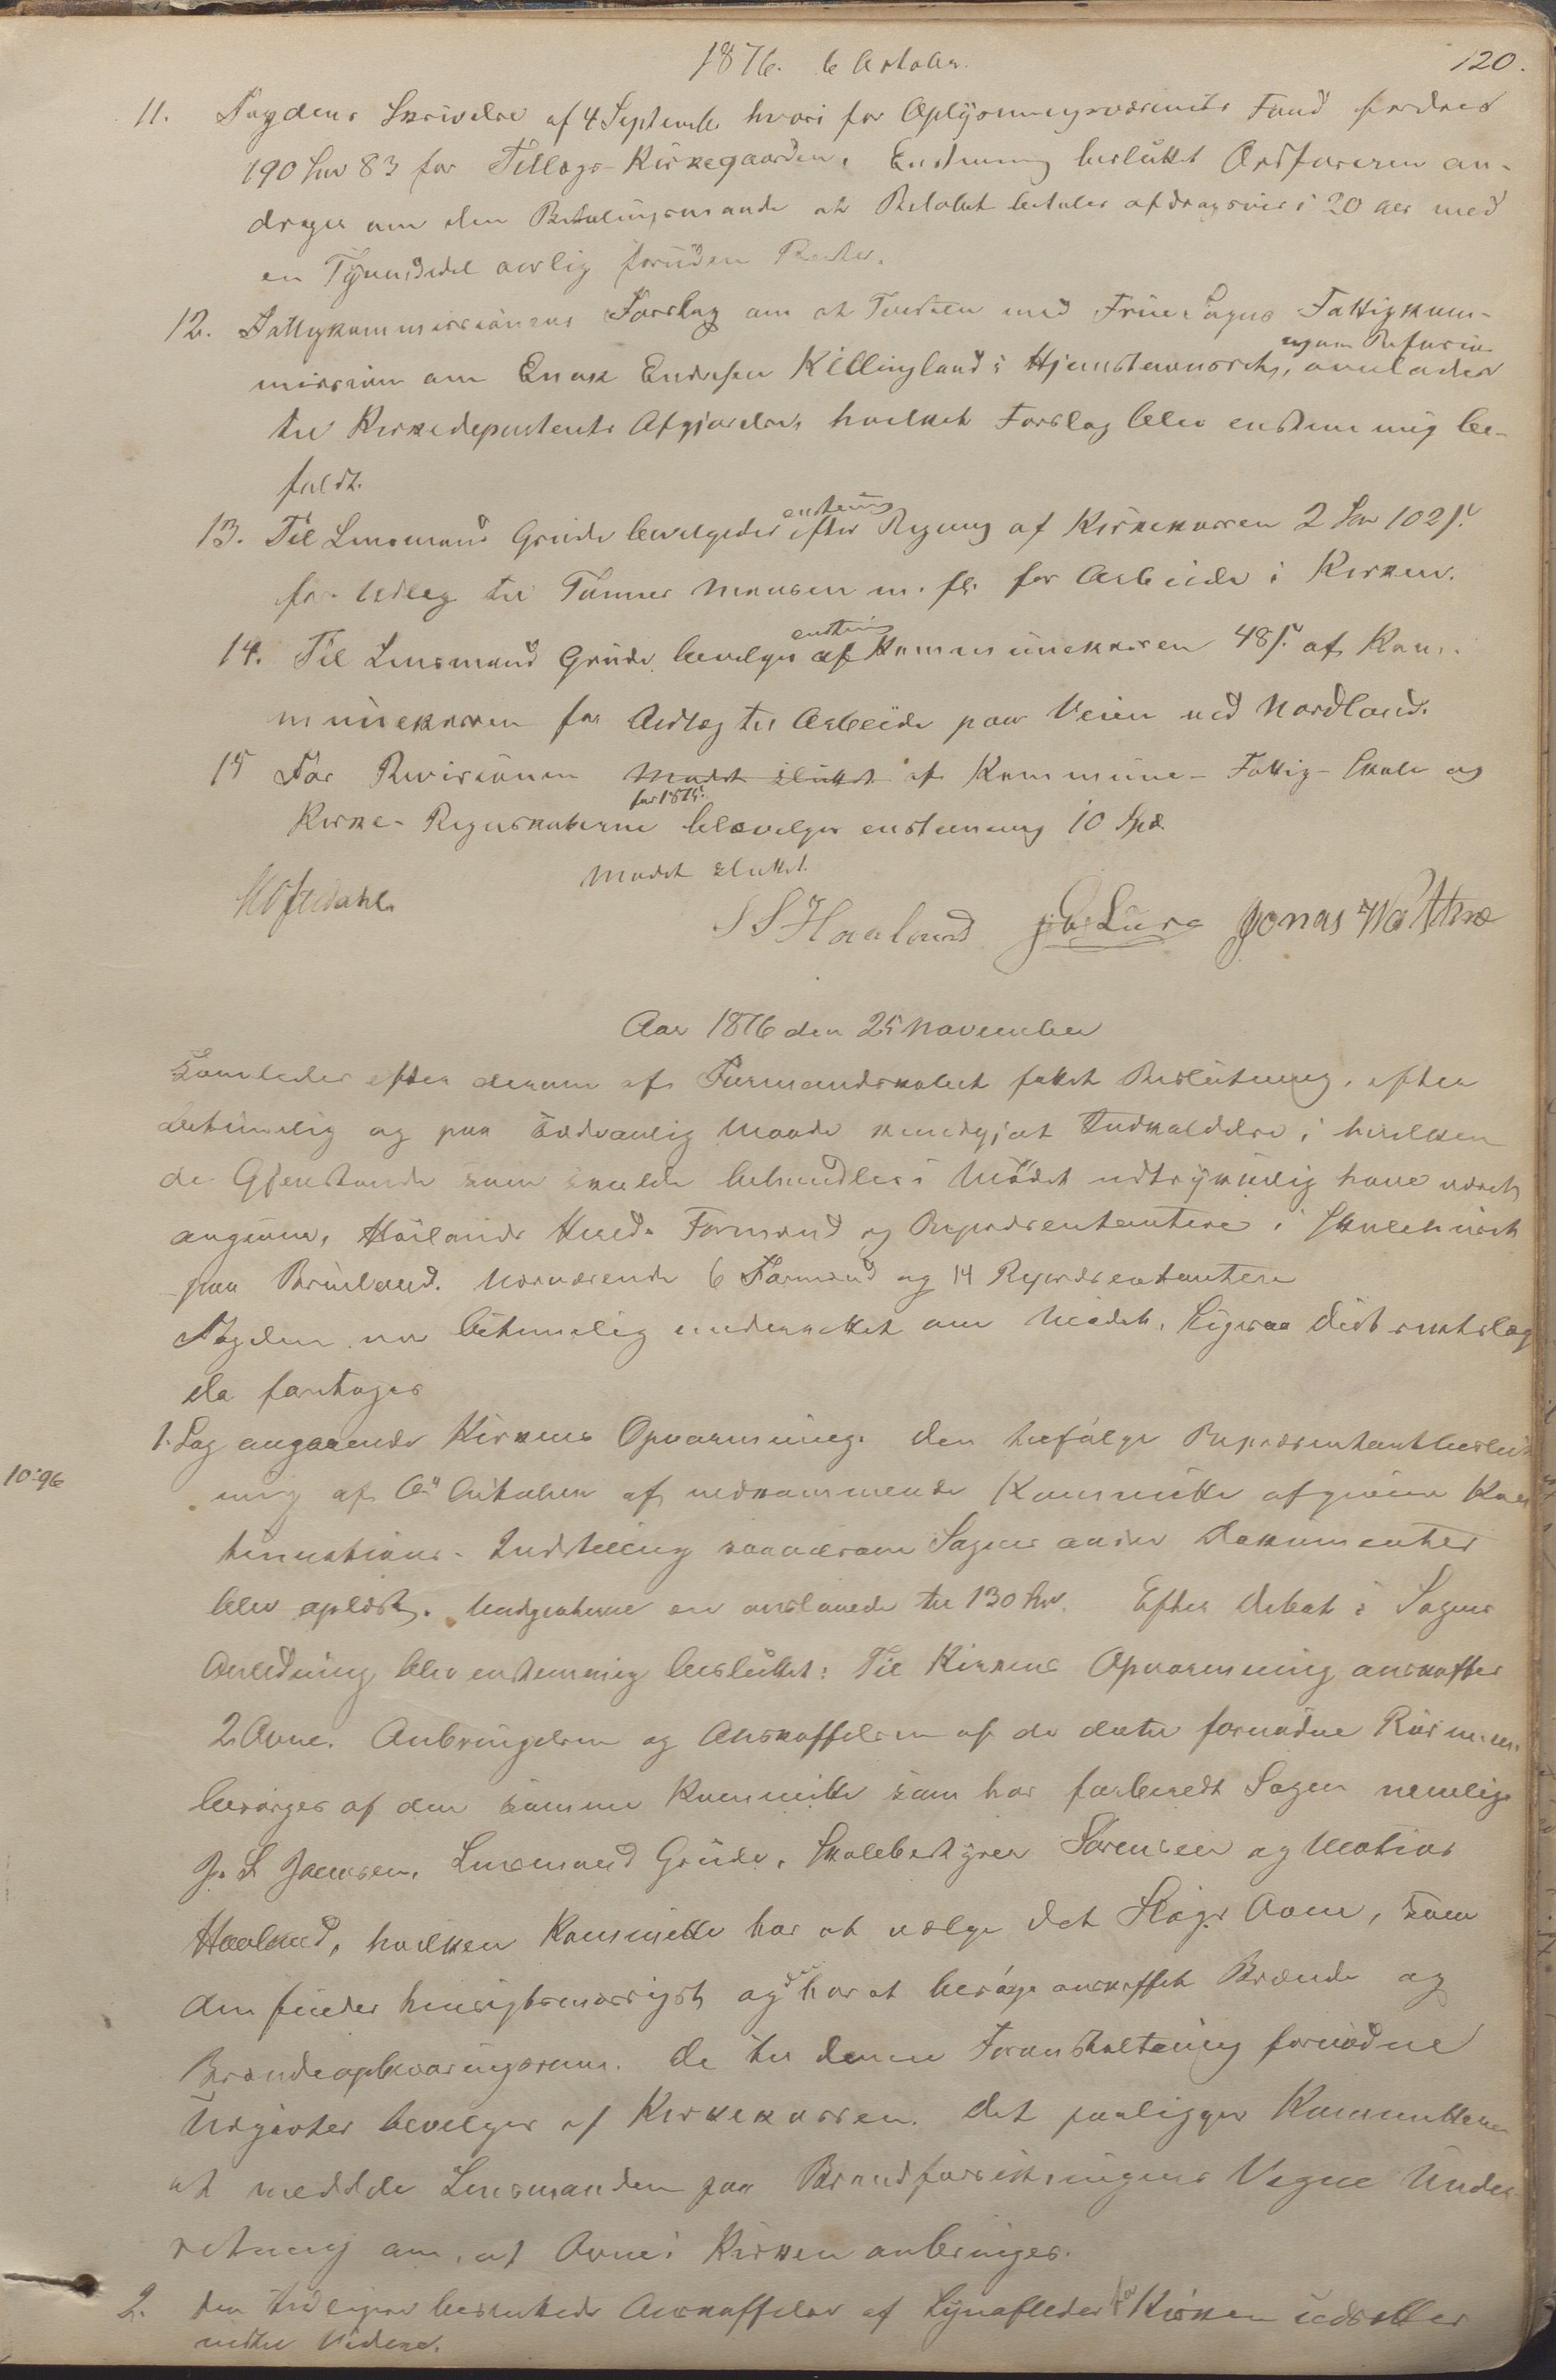 1876. 6 October.
120.
11. Fogdens Skrivelse af 4 September hvori for Oplysningsvæsenets Fond fordres
190 Kr 83 for Tillægs-Kirkegaarden. Enstemmig besluttet Ordføreren an-
drager om den Betalingsmaade at Beløbet betales afdragsvis i 20 Aar med
en Tyvendedel aarlig foruden Renter.
12. Fattigkommissionens Forslag om at Tvisten med Frue Sogns Fattigkom-
mission om Enok Endresen Killingland's Hjemstavnsret, ogsom Refusion overlades
til Kirkedepartements Afgjørelse, hvilket Forslag blev enstemmig bi-
faldt.
13. Til Lensmand Grude bevilgedes enstemmig efter Regning af Kirkekassen 2 Spd 102 s.
for Udlæg til Tømmermand m. fl. for Arbeide i Kirken.
14. Til Lensmand Grude bevilges enstemmig af Kommunekassen 48 s. af Kom-
munekassen for Udlæg til Arbeide paa Veien ved Nordland.
15 For Revisionen Mødet sluttet af Kommune- Fattig- Skole og
Kirke-Regnskaberne for 1875. bevilges enstemmig 10 Spd.
Mødet sluttet.
S S Haaland Jonas Wathne
Aar 1876 den 25 November
samledes efter derom af Formandskabet fattet Beslutning, efter
betimelig og paa sædvanlig Maade kundgjort Indkaldelse, i hvilken
de Gjenstande som skulde behandles i Mødet udtrykkelig have været
angivne, Høilands Herreds Formænd og Repræsentantere i Skolehuset
paa Bruland. Nærværende 6 Formænd og 14 Repræsentantere
Fogden var betimelig underrettet om Mødet, ligesaa Distriktslæg
da foretoges
1. Sag angaaende Kirkens Opvarmning. Den ifølge Repræsentantbeslut
10:96
ning af 6te October af vedkommende Kommitte afgivne Kon
tinuations-Indstilling saavelsom Sagens andre Dokumenter
blev oplæst. Udgifterne ere anslaaede til 130 Spd. Efter Debat i Sagens
Anledning blev enstemmig besluttet: Til Kirkens Opvarmning anskaffes
2 Ovne. Anbringelsen og Anskaffelsen af de dertil fornødne Rør m. m.
besørges af den samme Kommitte som har forberedt Sagen nemlig
J. S. Jansen, Lensmand Grude, Skolebestyrer Sørensen og Mathias
Haaland, hvilken Kommitte har at vælge det Slags Ovne, som
den finder hensigtsmæssigst, og den har at besørge anskaffet Brænde og
Brændeopbevaringsrum. De til denne Foranstaltning fornødne
Udgivter bevilges af Kirkekassen. Det paaligger Kommitteen
at meddele Lensmanden paa Brandforsikringens Vegne Under-
retning om, at Ovne i Kirken anbringes.
2. Den tidligere besluttede Anskaffelse af Lynafleder for Kirken udsættes
indtil Videre.